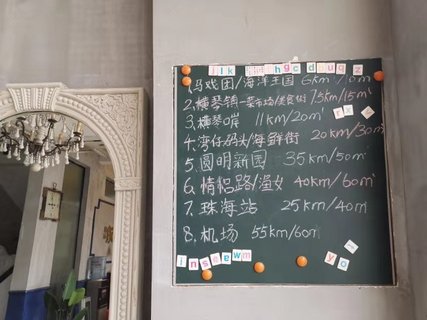 j l k h g c d n u g z
1.马戏团/海洋王国 6km/10㎡
2.横琴镇-菜市场/美食街 7.5km/15㎡
3.横琴口岸 11km/20㎡
4.湾仔码头/海鲜街 20km/30㎡
5.圆明新园 35km/50㎡
6.情侣路/渔女 40km/60㎡
7.珠海站 25km/40㎡
8.机场 55km/60㎡
i n s e e w m
y o